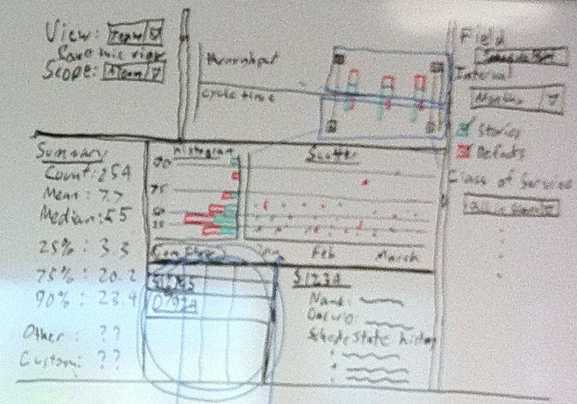 View: Team
Save this view
Scope: Team
throughput
cycle time
Field
Interval
Stories
Defects
Class of Service
Summary
Count: 254
Mean: 7.7
Median: 5.5
25%: 3.3
75%: 20.2
90%: 23.9
Other: ??
Custom: ??
Histogram
Scatter
90
75
50
25
Jan Feb March
S1234
Name:
Owner:
Schedule State history